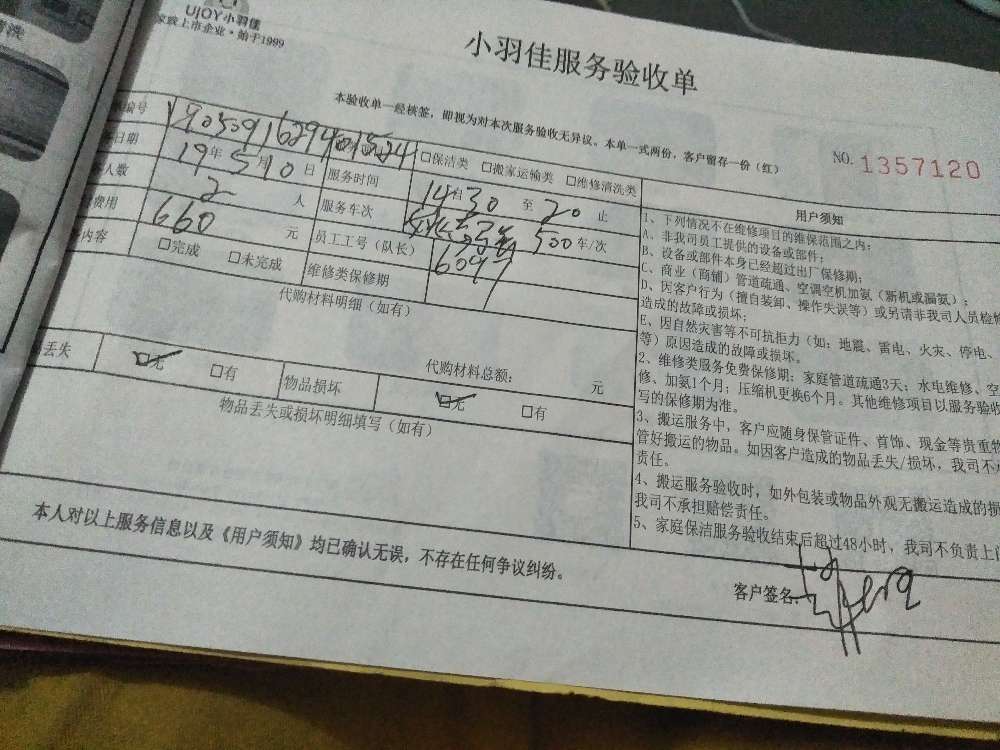 UJOY小羽佳
家族上市企业·始于1999
小羽佳服务验收单
本验收单一经核签，即视为对本次服务验收无异议。本单一式两份，客户留存一份（红）
NO. 1357120
编号
□保洁类 □搬家运输类 □维修清洗类
日期 19年5月10日 服务时间 14 30 至 20 止
人数 2 人 服务车次 500 车/次
费用 660 元 员工工号（队长） 6097
内容 □完成 □未完成 维修类保修期
代购材料明细（如有）
代购材料总额： 元
丢失 □无 □有 物品损坏 □无 □有
物品丢失或损坏明细填写（如有）
用户须知
1、下列情况不在维修项目的维保范围之内：
A、非我司员工提供的设备或部件；
B、设备或部件本身已经超过出厂保修期；
C、商业（商铺）管道疏通、空调空机加氨（新机或漏氨）；
D、因客户行为（擅自装卸、操作失误等）或另请非我司人员检修
造成的故障或损坏；
E、因自然灾害等不可抗拒力（如：地震、雷电、火灾、停电、
等）原因造成的故障或损坏。
2、维修类服务免费保修期：家庭管道疏通3天；水电维修、空
修、加氨1个月；压缩机更换6个月。其他维修项目以服务验收
写的保修期为准。
3、搬运服务中，客户应随身保管证件、首饰、现金等贵重物
管好搬运的物品。如因客户造成的物品丢失/损坏，我司不
责任。
4、搬运服务验收时，如外包装或物品外观无搬运造成的损
我司不承担赔偿责任。
5、家庭保洁服务验收结束后超过48小时，我司不负责上
本人对以上服务信息以及《用户须知》均已确认无误，不存在任何争议纠纷。
客户签名：